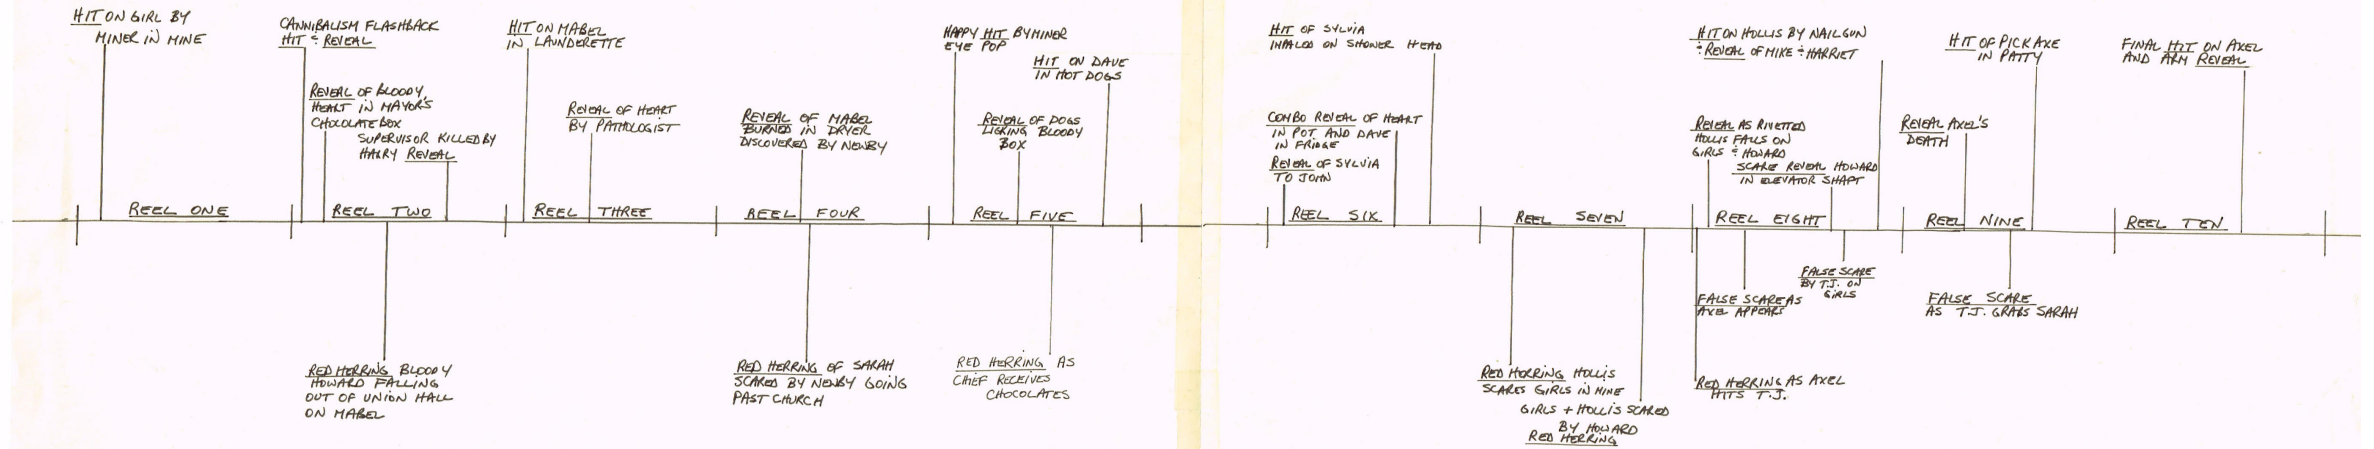 HIT ON GIRL BY
MINER IN MINE
CANNIBALISM FLASHBACK
HIT & REVEAL
REVEAL OF BLOODY
HEART IN MAYOR'S
CHOCOLATE BOX
SUPERVISOR KILLED BY
HARRY REVEAL
HIT ON MABEL
IN LAUNDERETTE
REVEAL OF HEART
BY PATHOLOGIST
REVEAL OF MABEL
BURNED IN DRYER
DISCOVERED BY NEWBY
HAPPY HIT BY MINER
EYE POP
HIT ON DAVE
IN HOT DOGS
REVEAL OF DOGS
LICKING BLOODY
BOX
HIT OF SYLVIA
IMPALED ON SHOWER HEAD
COMBO REVEAL OF HEART
IN POT AND DAVE
IN FRIDGE
REVEAL OF SYLVIA
TO JOHN
HIT ON HOLLIS BY NAILGUN
& REVEAL OF MIKE & HARRIET
REVEAL AS RIVETTED
HOLLIS FALLS ON
GIRLS & HOWARD
SCARE REVEAL HOWARD
IN ELEVATOR SHAFT
HIT OF PICKAXE
IN PATTY
REVEAL AXEL'S
DEATH
FINAL HIT ON AXEL
AND ARM REVEAL
REEL ONE
REEL TWO
REEL THREE
REEL FOUR
REEL FIVE
REEL SIX
REEL SEVEN
REEL EIGHT
REEL NINE
REEL TEN
RED HERRING BLOODY
HOWARD FALLING
OUT OF UNION HALL
ON MABEL
RED HERRING OF SARAH
SCARED BY NEWBY GOING
PAST CHURCH
RED HERRING AS
CHIEF RECEIVES
CHOCOLATES
RED HERRING HOLLIS
SCARES GIRLS IN MINE
GIRLS + HOLLIS SCARED
BY HOWARD
RED HERRING
FALSE SCARE AS
AXEL APPEARS
FALSE SCARE
BY T.J. ON
GIRLS
RED HERRING AS AXEL
HITS T.J.
FALSE SCARE
AS T.J. GRABS SARAH